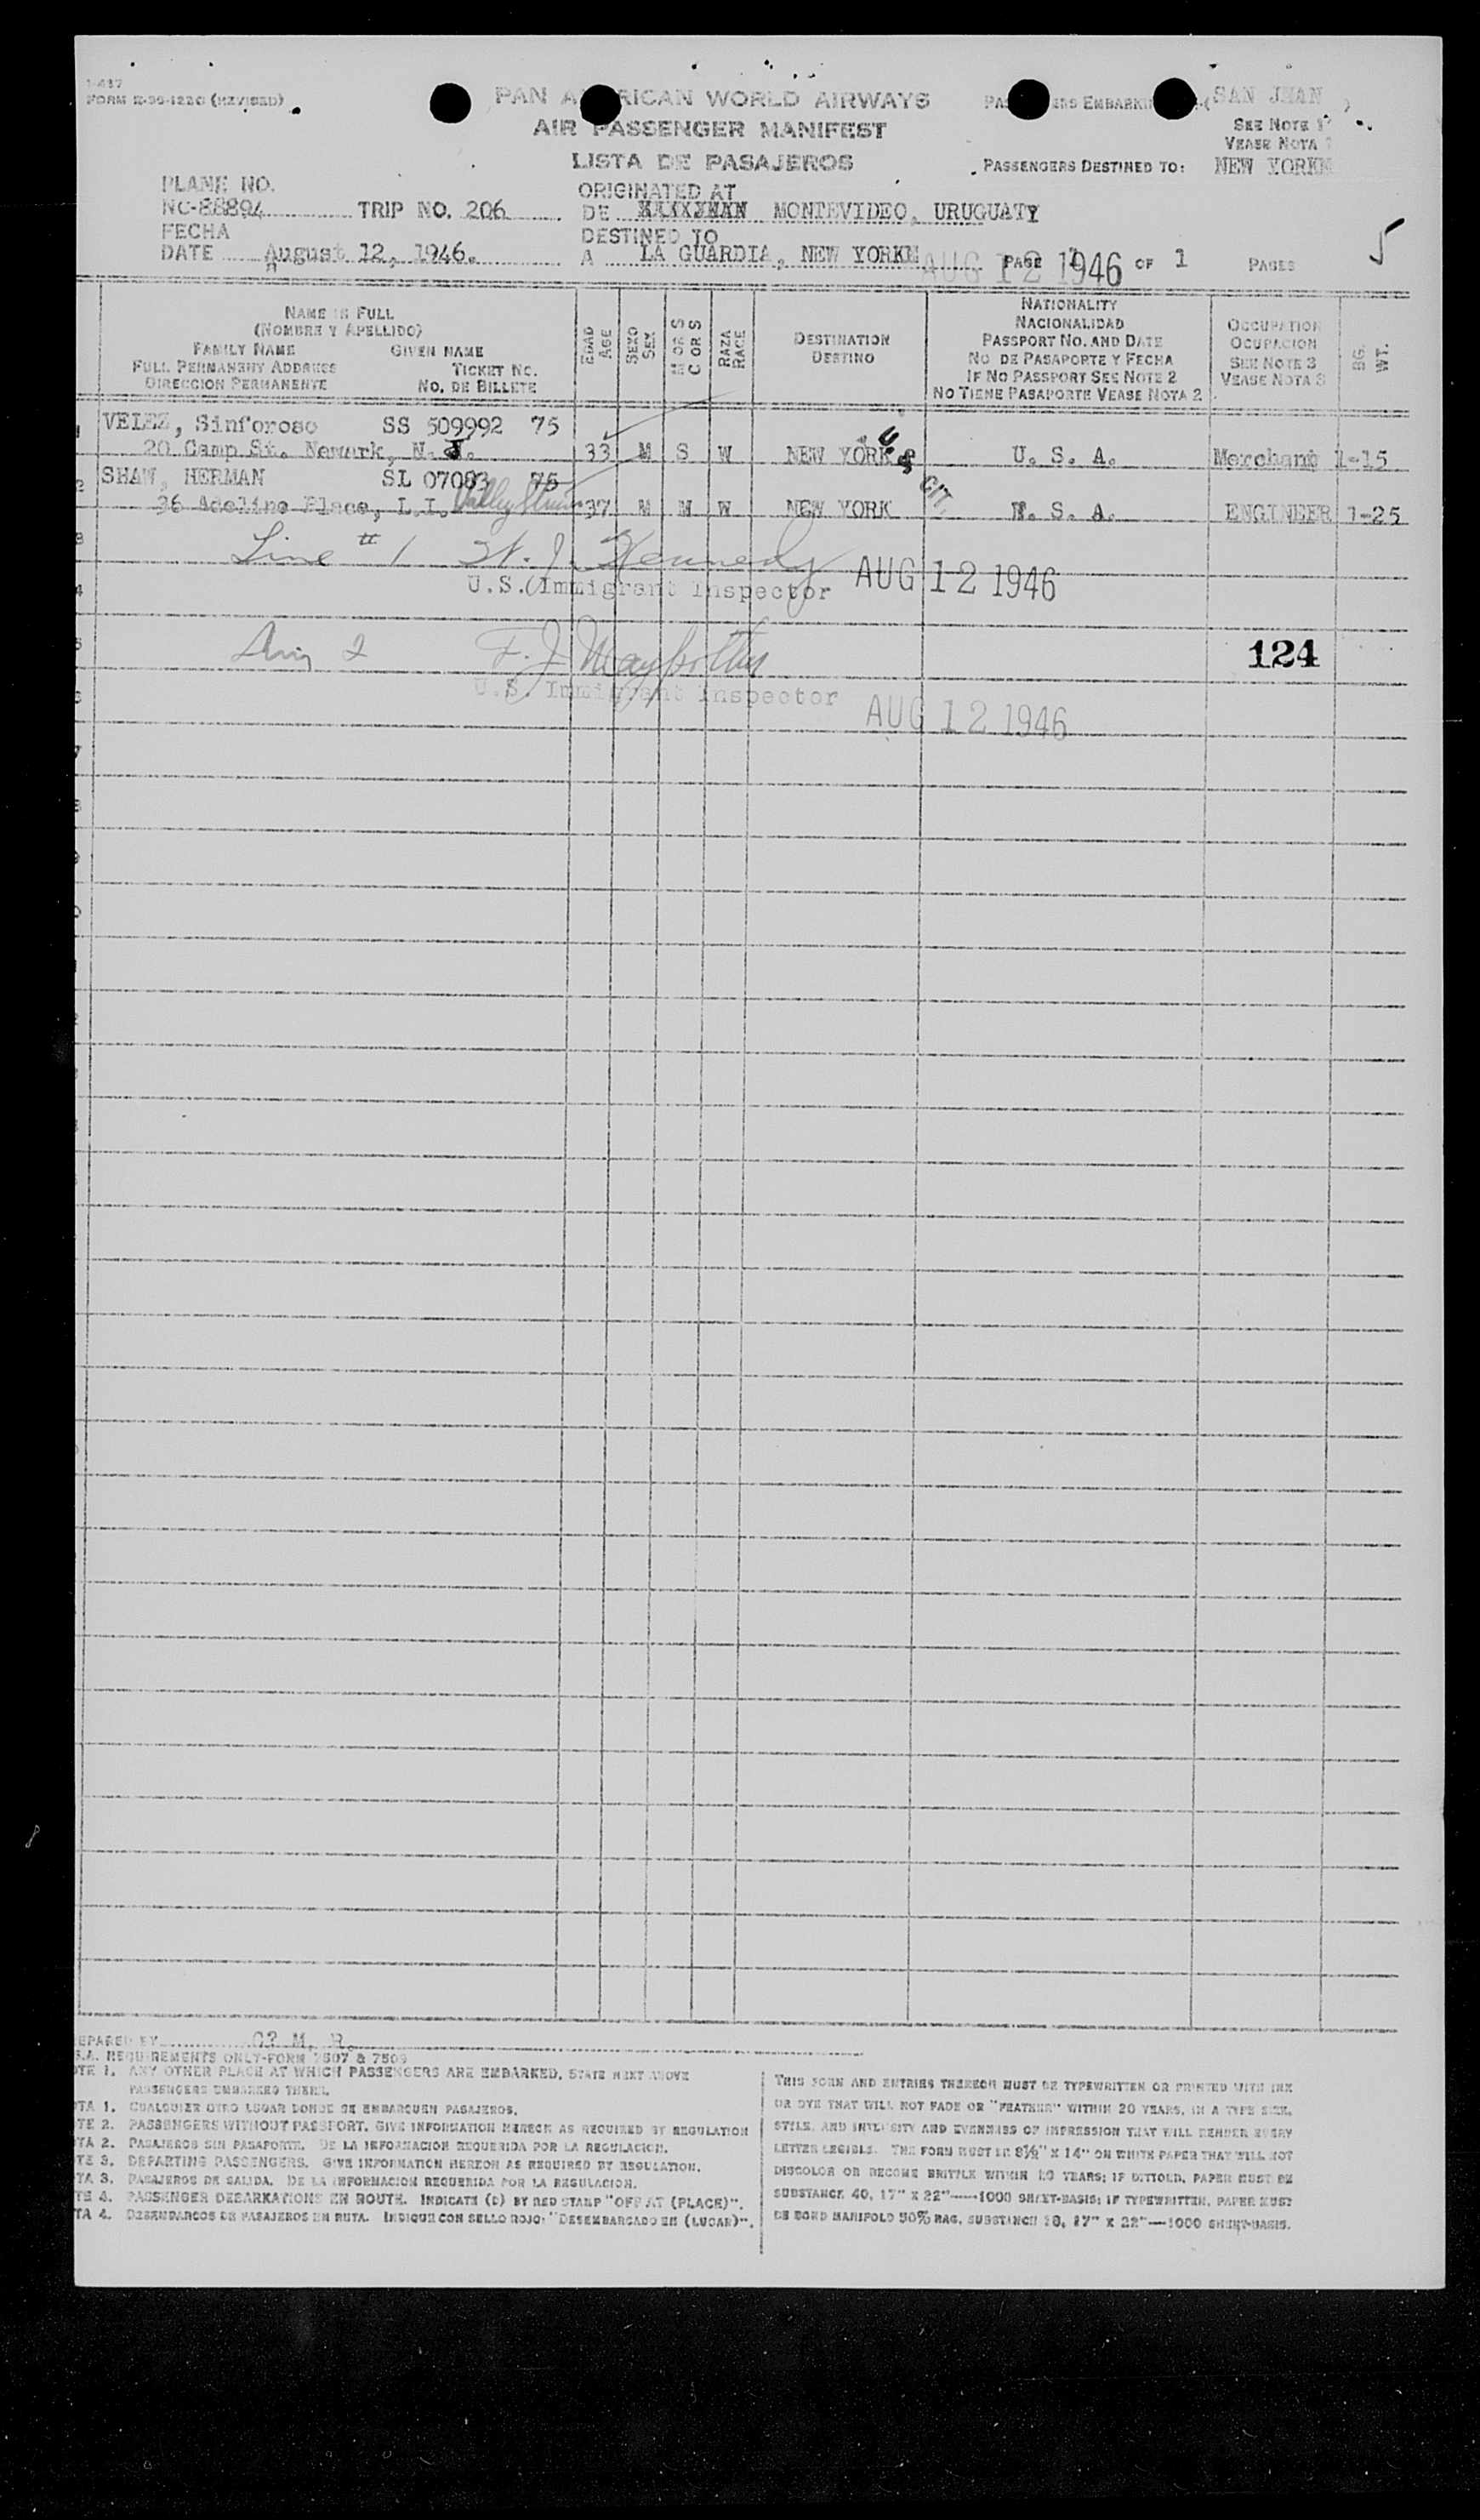 1-417
FORM E-96-122C (REVISED)
PAN AMERICAN WORLD AIRWAYS
AIR PASSENGER MANIFEST
LISTA DE PASAJEROS
(SAN JUAN)
SEE NOTE 1
VEASE NOTA 1
PASSENGERS DESTINED TO: NEW YORK
PLANE NO.
NC-88894 TRIP NO. 206
FECHA
DATE August 12, 1946.
ORIGINATED AT
DE MONTEVIDEO, URUGUAY
DESTINED TO
A LA GUARDIA, NEW YORK
AUG 12 1946
PAGE 1 OF 1 PAGES
5
NAME IN FULL
(NOMBRE Y APELLIDO)
FAMILY NAME GIVEN NAME
FULL PERMANENT ADDRESS TICKET NO.
DIRECCION PERMANENTE NO. DE BILLETE
EDAD
AGE
SEXO
SEX
M OR S
C OR S
RAZA
RACE
DESTINATION
DESTINO
NATIONALITY
NACIONALIDAD
PASSPORT NO. AND DATE
NO. DE PASAPORTE Y FECHA
IF NO PASSPORT SEE NOTE 2
NO TIENE PASAPORTE VEASE NOTA 2
OCCUPATION
OCUPACION
SEE NOTE 3
VEASE NOTA 3
BG.
WT.
1 VELEZ, Sinforoso SS 509992 75
20 Camp St. Newark, N.J. 33 M S W NEW YORK U. S. A. Merchant 1-15
U S CIT.
2 SHAW, HERMAN SL 07083 75
36 Adeline Place, L.I. Valley Stream 37 M M W NEW YORK U. S. A. ENGINEER 1-25
3 Line # 1 Kennedy
U.S. Immigrant Inspector AUG 12 1946
4
5 2 F. J.
124
U.S. Immigrant Inspector
AUG 12 1946
6
7
PREPARED BY
U.S.A. REQUIREMENTS ONLY-FORM 7507 & 7509
NOTE 1. ANY OTHER PLACE AT WHICH PASSENGERS ARE EMBARKED, STATE NEXT ABOVE
PASSENGERS EMBARKED THERE.
NOTA 1. CUALQUIER OTRO LUGAR DONDE SE EMBARQUEN PASAJEROS.
NOTE 2. PASSENGERS WITHOUT PASSPORT. GIVE INFORMATION HEREON AS REQUIRED BY REGULATION
NOTA 2. PASAJEROS SIN PASAPORTE. DE LA INFORMACION REQUERIDA POR LA REGULACION.
NOTE 3. DEPARTING PASSENGERS. GIVE INFORMATION HEREON AS REQUIRED BY REGULATION.
NOTA 3. PASAJEROS DE SALIDA. DE LA INFORMACION REQUERIDA POR LA REGULACION.
NOTE 4. PASSENGER DEBARKATIONS EN ROUTE. INDICATE (D) BY RED STAMP "OFF AT (PLACE)".
NOTA 4. DESEMBARCOS DE PASAJEROS EN RUTA. INDIQUE CON SELLO ROJO: "DESEMBARCADO EN (LUGAR)".
THIS FORM AND ENTRIES THEREON MUST BE TYPEWRITTEN OR PRINTED WITH INK
OR DYE THAT WILL NOT FADE OR "FEATHER" WITHIN 20 YEARS, IN A TYPE SIZE,
STYLE, AND INTENSITY AND EVENNESS OF IMPRESSION THAT WILL RENDER EVERY
LETTER LEGIBLE. THE FORM MUST BE 8½" X 14" ON WHITE PAPER THAT WILL NOT
DISCOLOR OR BECOME BRITTLE WITHIN 20 YEARS; IF DITTOED, PAPER MUST BE
SUBSTANCE 40, 17" X 22"—1000 SHEET-BASIS; IF TYPEWRITTEN, PAPER MUST
BE BOND MANIFOLD 50% RAG, SUBSTANCE 18, 17" X 22"—1000 SHEET-BASIS.